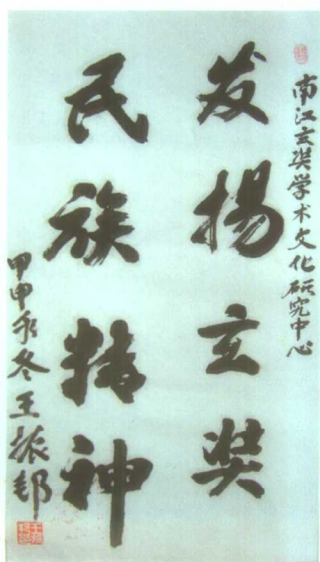 南江玄奘学术文化研究中心
发揚玄奘
民族精神
甲申年冬王振邦